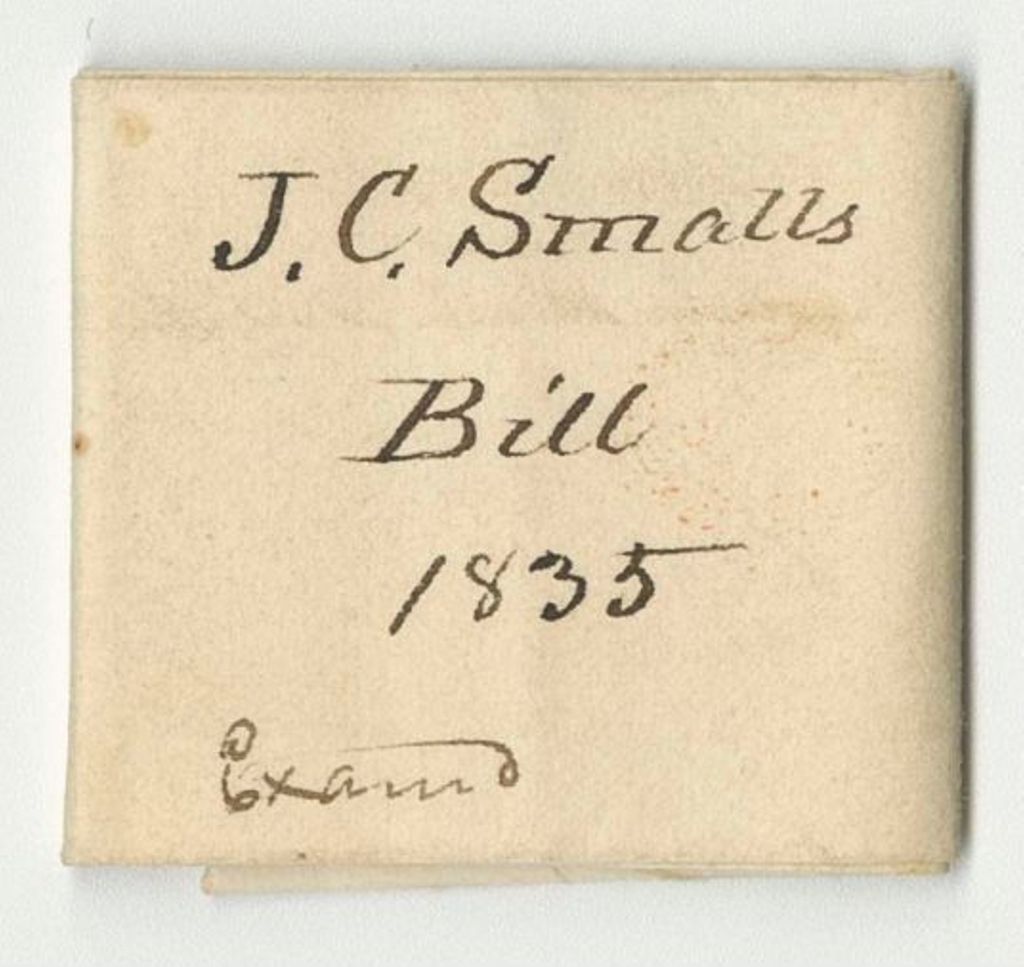 J. C. Smalls
Bill
1835
Examd